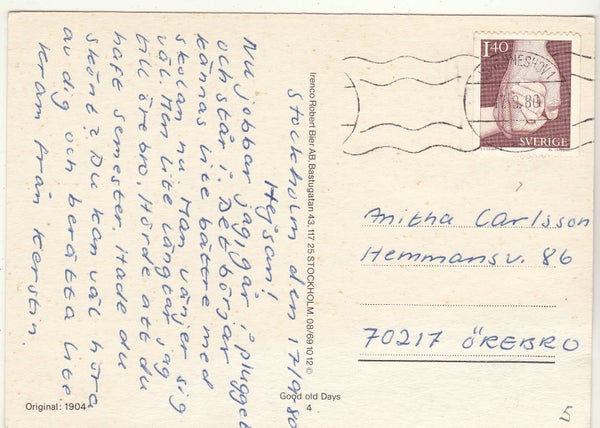 Stockholm den 17/9-80
Hejsan!
Nu jobbar jag, går i plugget
och står i. Det börjar
kännas lite bättre med
skolan nu. Man vänjer sig
väl. Men lite längtar jag
till Örebro. Hörde att du
haft semester. Hade du
skönt? Du kan väl höra
av dig och berätta lite
Kram från Kerstin
Irenco Robert Bier AB, Bastugatan 43, 117 25 STOCKHOLM. 08/69 10 12 ©
Original: 1904
Good old Days
4
1.40
SVERIGE
9.80
Anitha Carlsson
Hemmansv. 86
70217 ÖREBRO
5